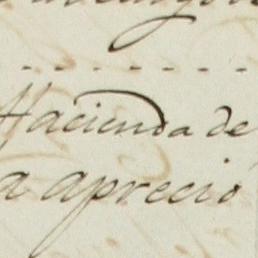 Hacienda de
a apreció